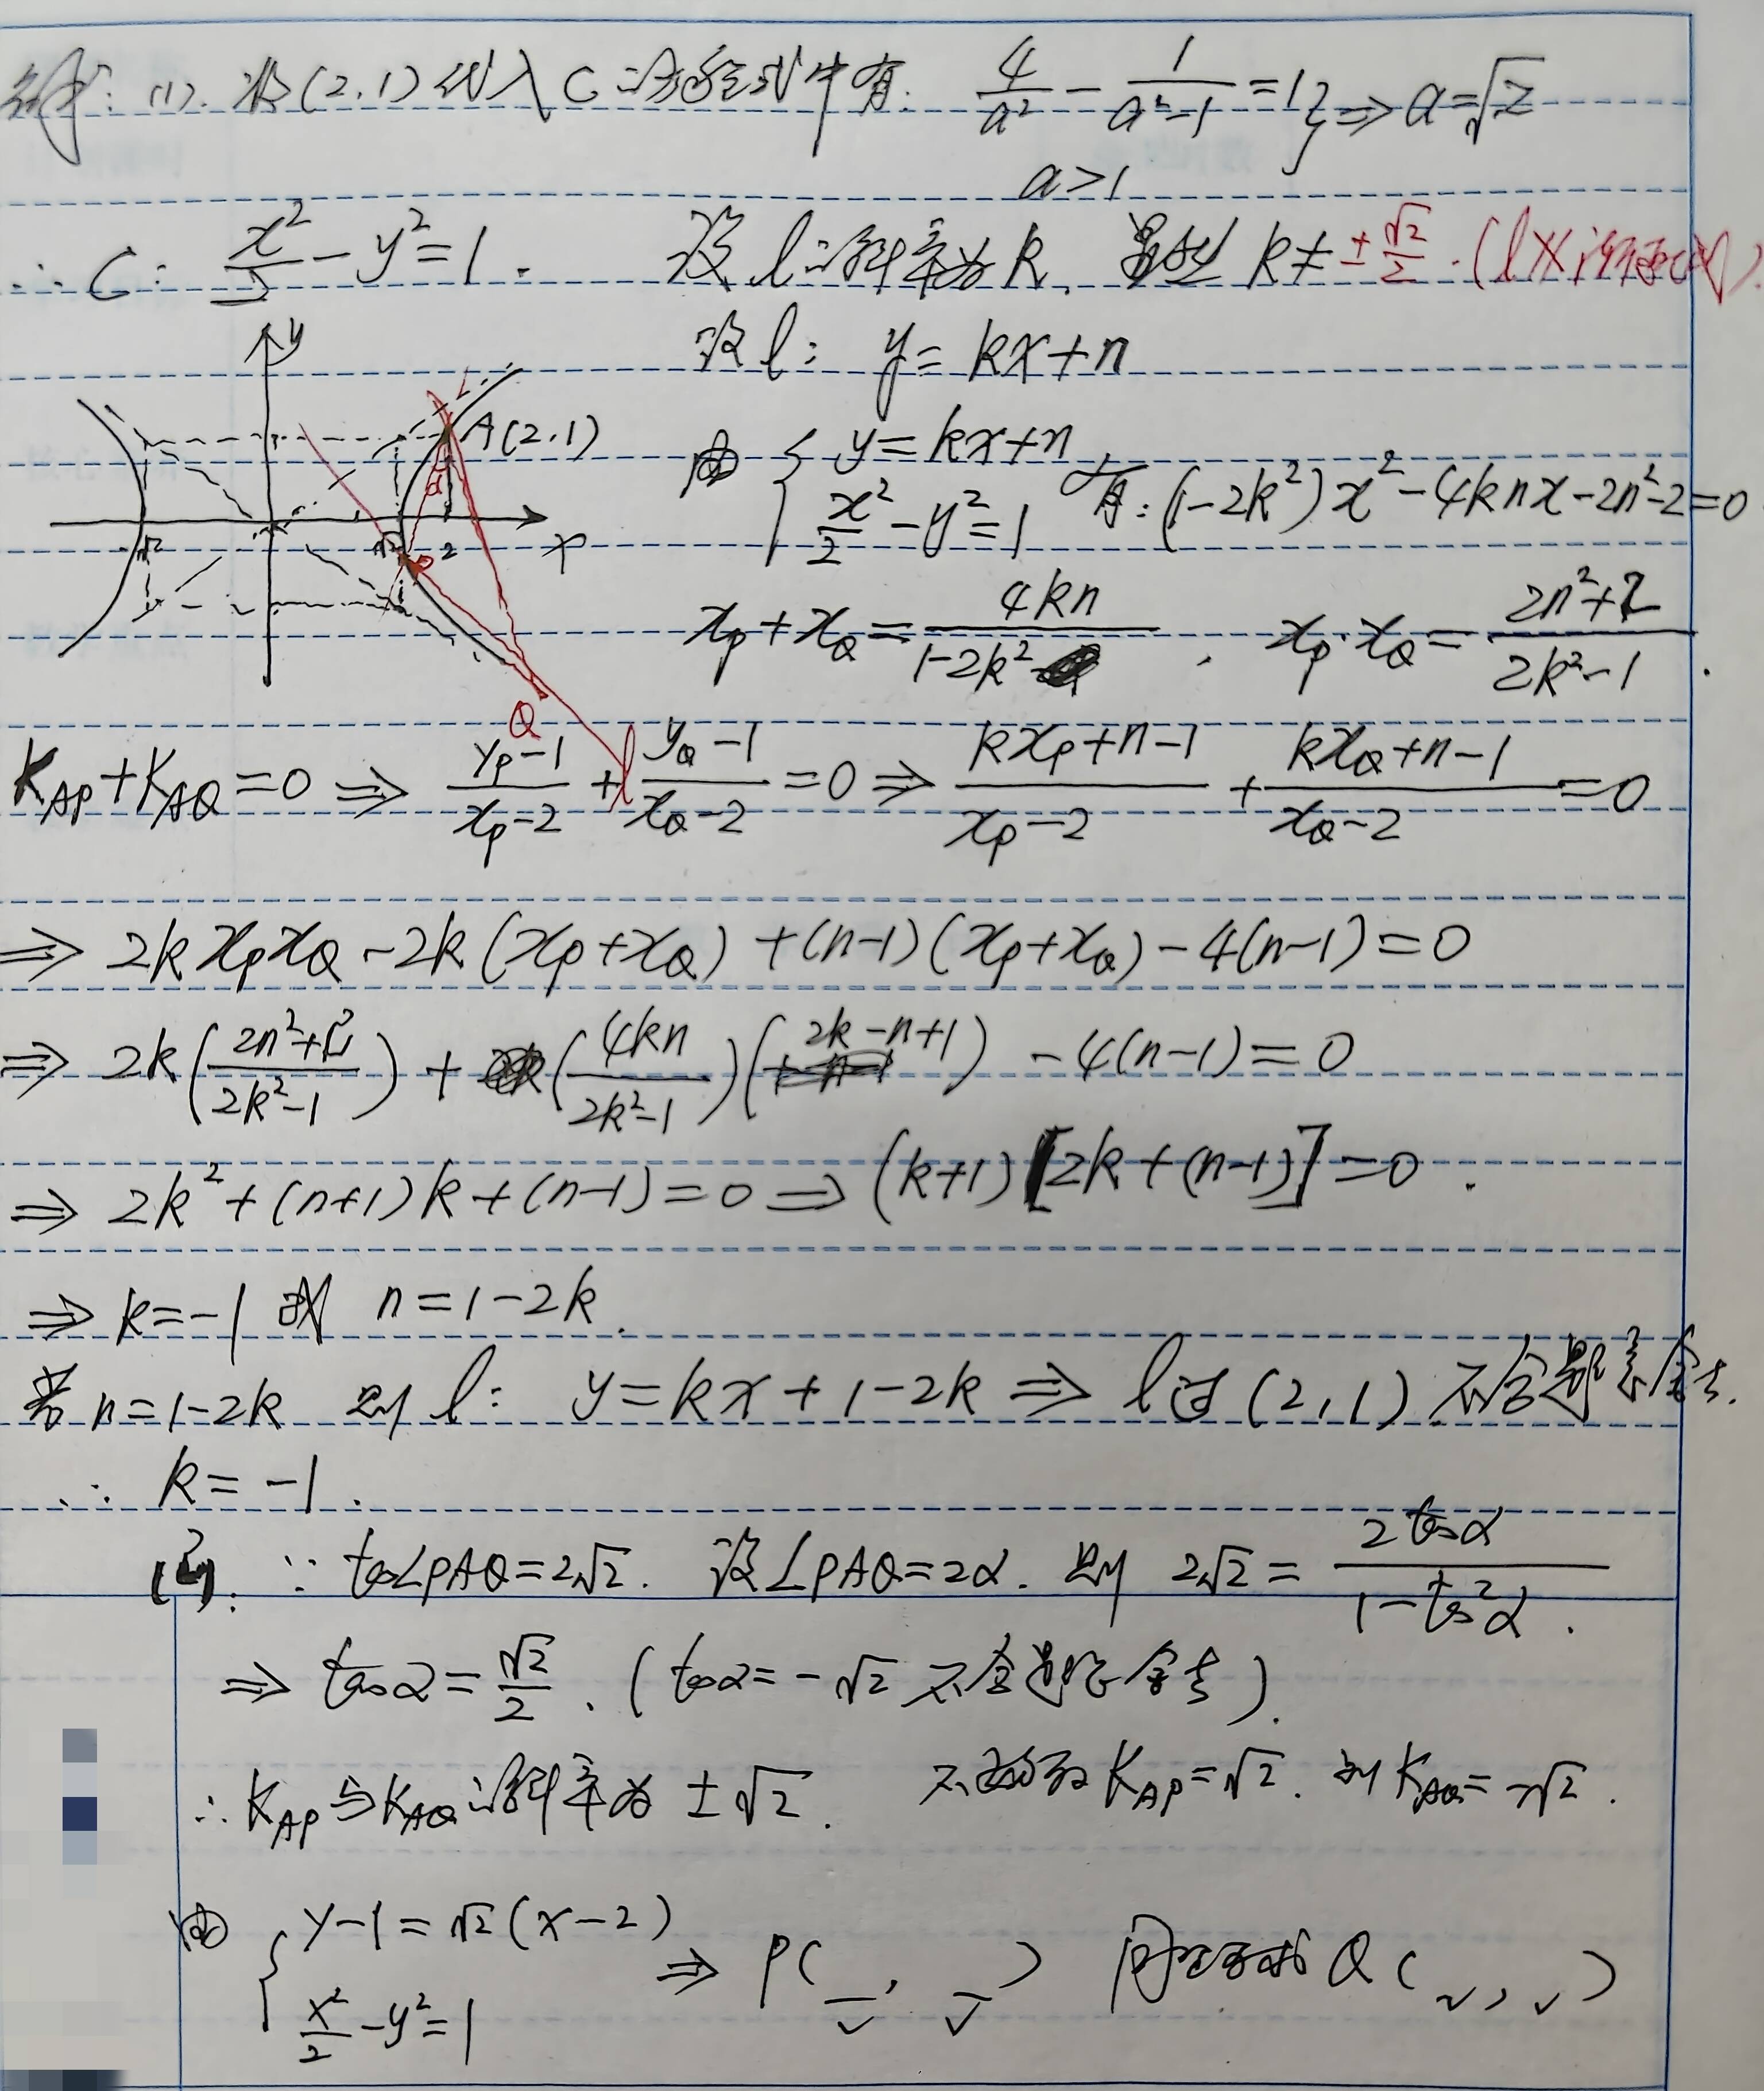 解: (1). 将(2,1)代入C的方程式中有: 4/a² - 1/(a²-1) = 1 } ⇒ a=√2
a>1
∴ C: x²/2 - y² = 1. 设 l 的斜率为k, 显然 k≠±√2/2. (l 不
设 l: y = kx+n
由 { y = kx+n
x²/2 - y² = 1 有: (1-2k²)x² - 4knx - 2n² - 2 = 0
y
A(2,1)
α
-√2 √2 2 x
P
Q
l
x_P + x_Q = 4kn/(1-2k²), x_P·x_Q = (2n²+2)/(2k²-1).
K_AP + K_AQ = 0 ⇒ (y_P-1)/(x_P-2) + (y_Q-1)/(x_Q-2) = 0 ⇒ (kx_P+n-1)/(x_P-2) + (kx_Q+n-1)/(x_Q-2) = 0
⇒ 2k x_P x_Q - 2k(x_P+x_Q) + (n-1)(x_P+x_Q) - 4(n-1) = 0
⇒ 2k((2n²+2)/(2k²-1)) + (4kn/(2k²-1))(2k-n+1) - 4(n-1) = 0
⇒ 2k² + (n+1)k + (n-1) = 0 ⇒ (k+1)[2k+(n-1)] = 0.
⇒ k=-1 或 n=1-2k.
若 n=1-2k 则 l: y = kx+1-2k ⇒ l过(2,1) 不合题意舍去.
∴ k = -1.
(2). ∵ tan∠PAQ=2√2. 设∠PAQ=2α. 则 2√2 = 2tanα/(1-tan²α).
⇒ tanα = √2/2. (tanα=-√2 不合题意舍去).
∴ K_AP与K_AQ的斜率为 ±√2. 不妨取 K_AP=√2. 则 K_AQ=-√2.
由 { y-1=√2(x-2)
x²/2 - y² = 1 ⇒ P( , ) 同理可求 Q( , )